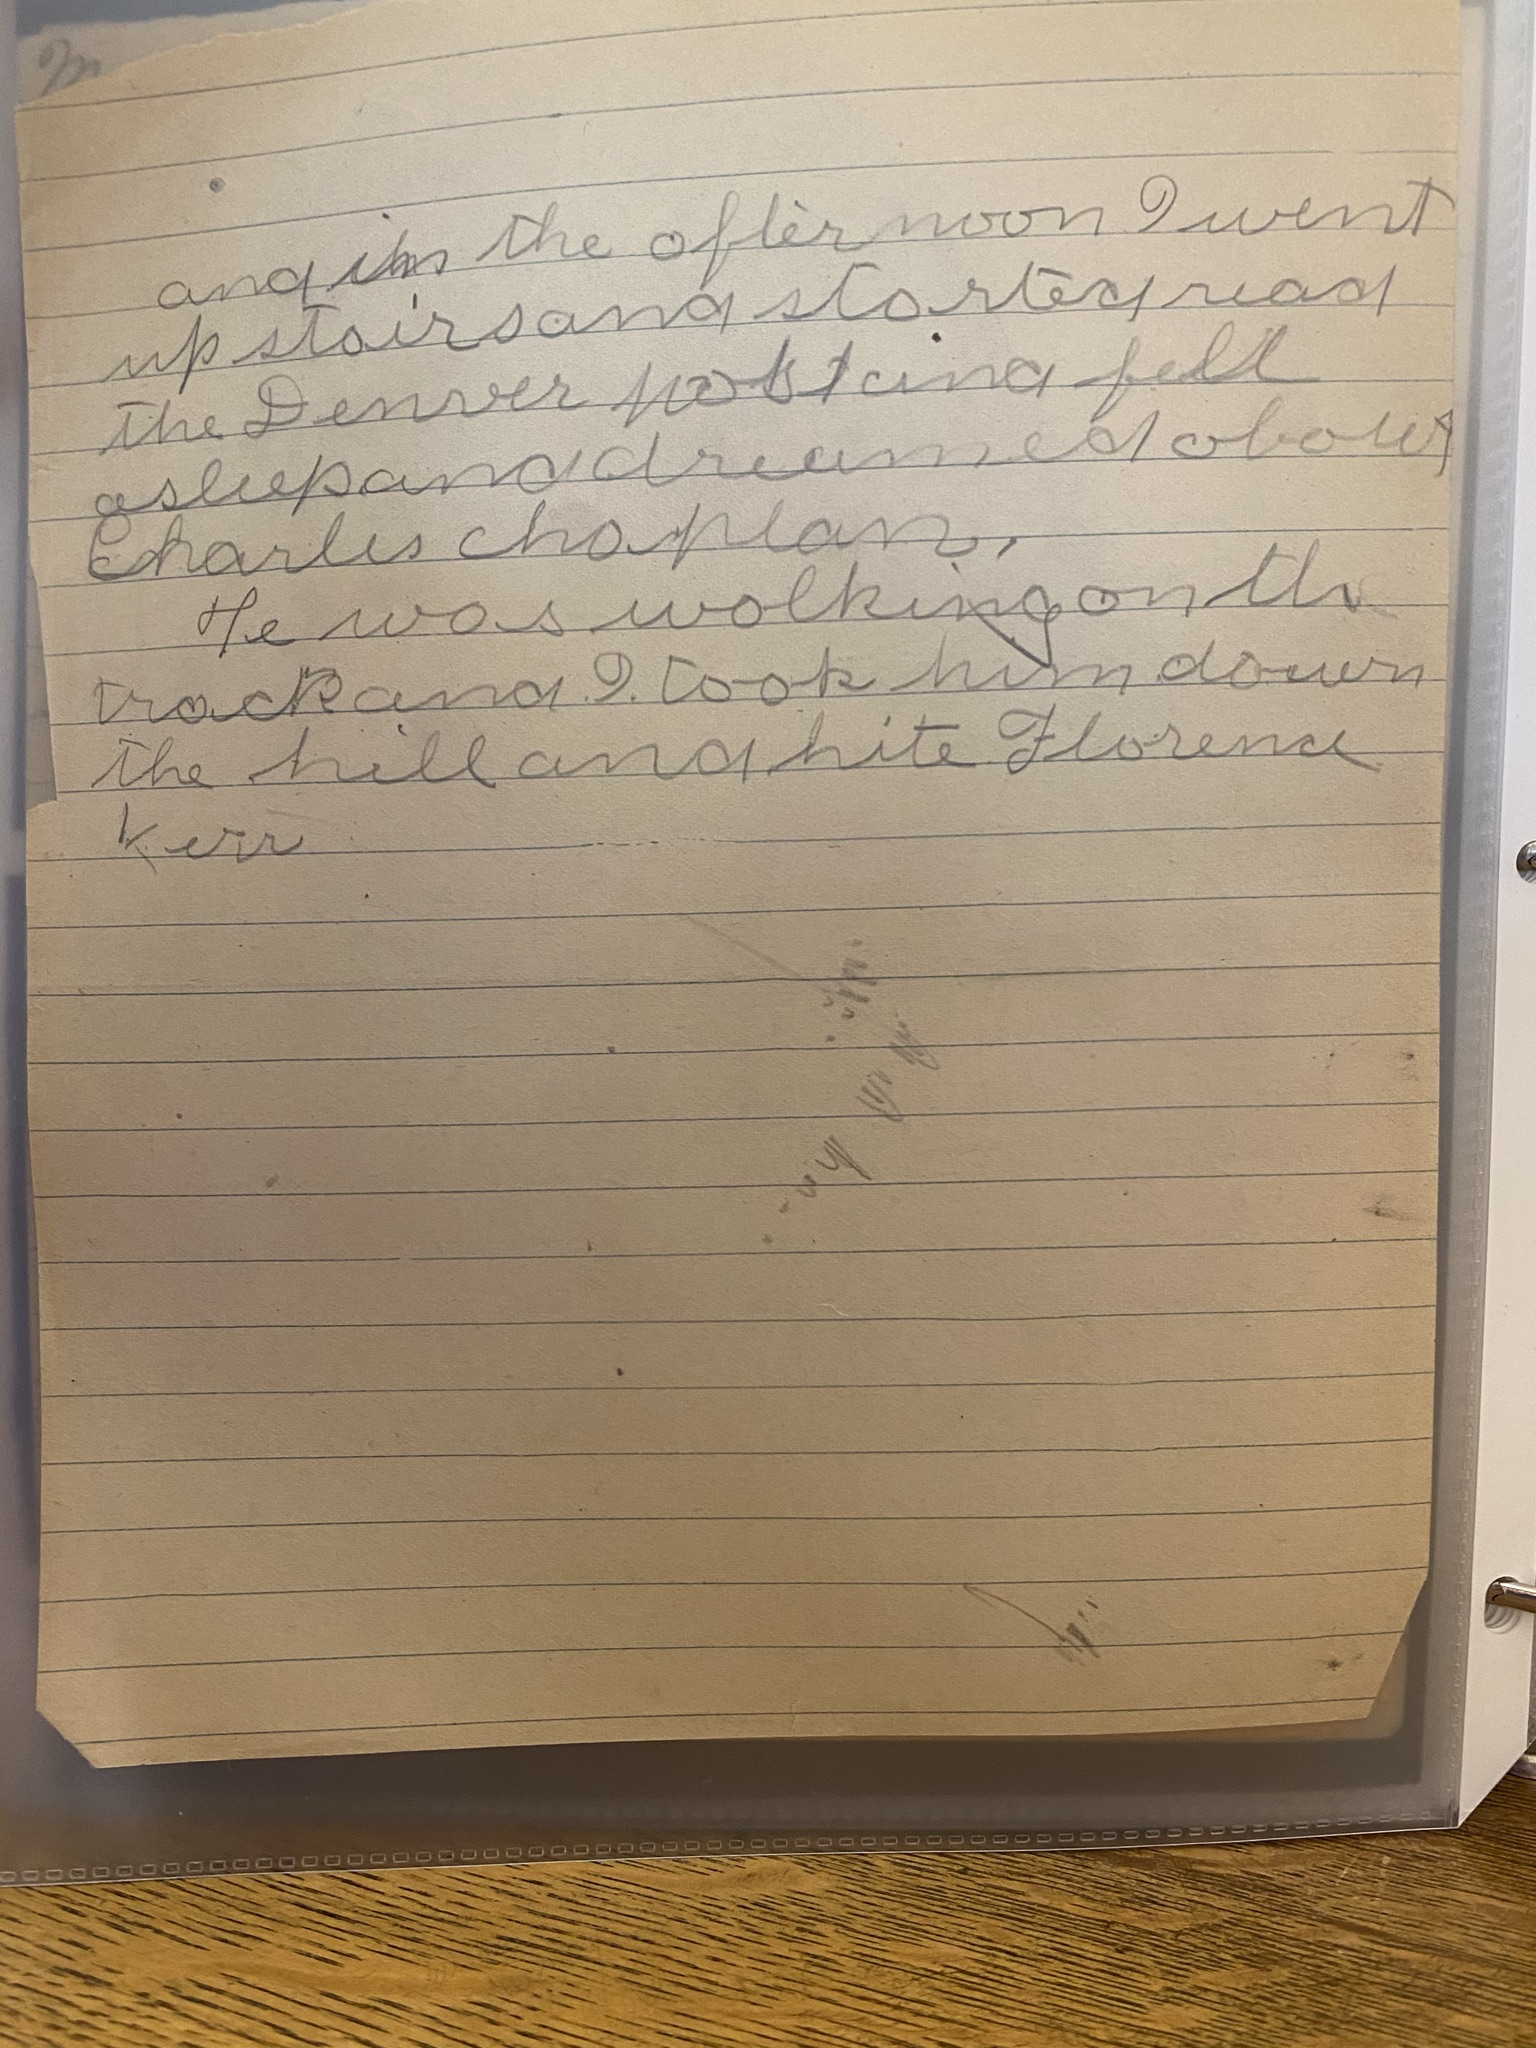 and in the afternoon I went
up stairs and started read
the Denver post and fell
asleep and dreamed about
Charles chaplan,
He was walking on th
track and I. took him down
the hill and hite Florence
Kerr